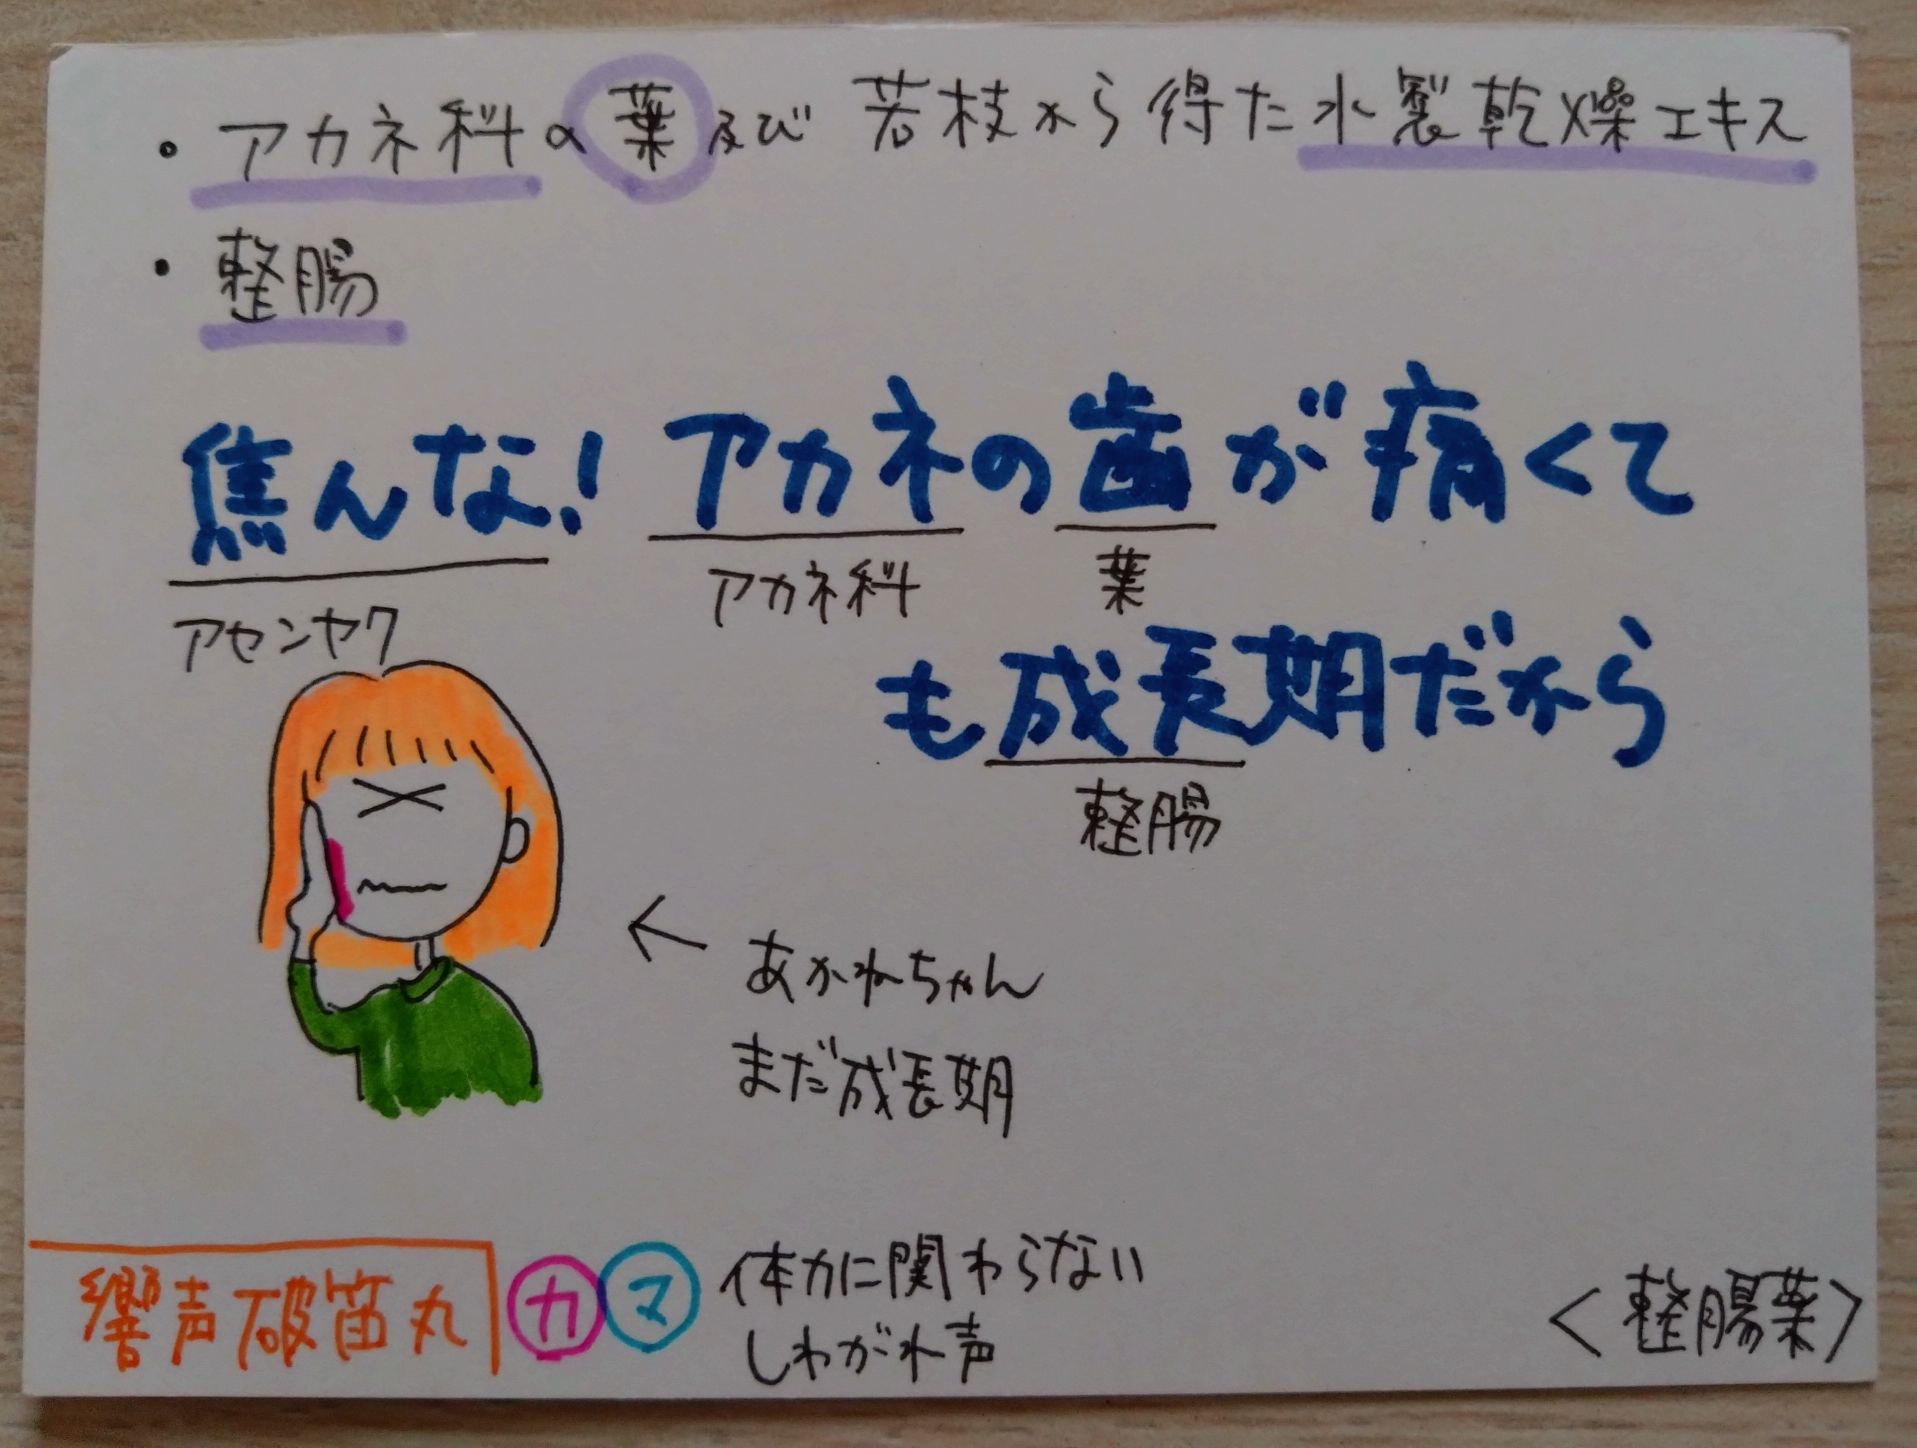 ・アカネ科の葉及び若枝から得た水製乾燥エキス
・整腸
焦んな!アカネの歯が痛くて
アセンヤク アカネ科 葉
も成長期だから
整腸
← あかねちゃん
まだ成長期
響声破笛丸 カ マ 体力に関わらない
しわがれ声
<整腸薬>